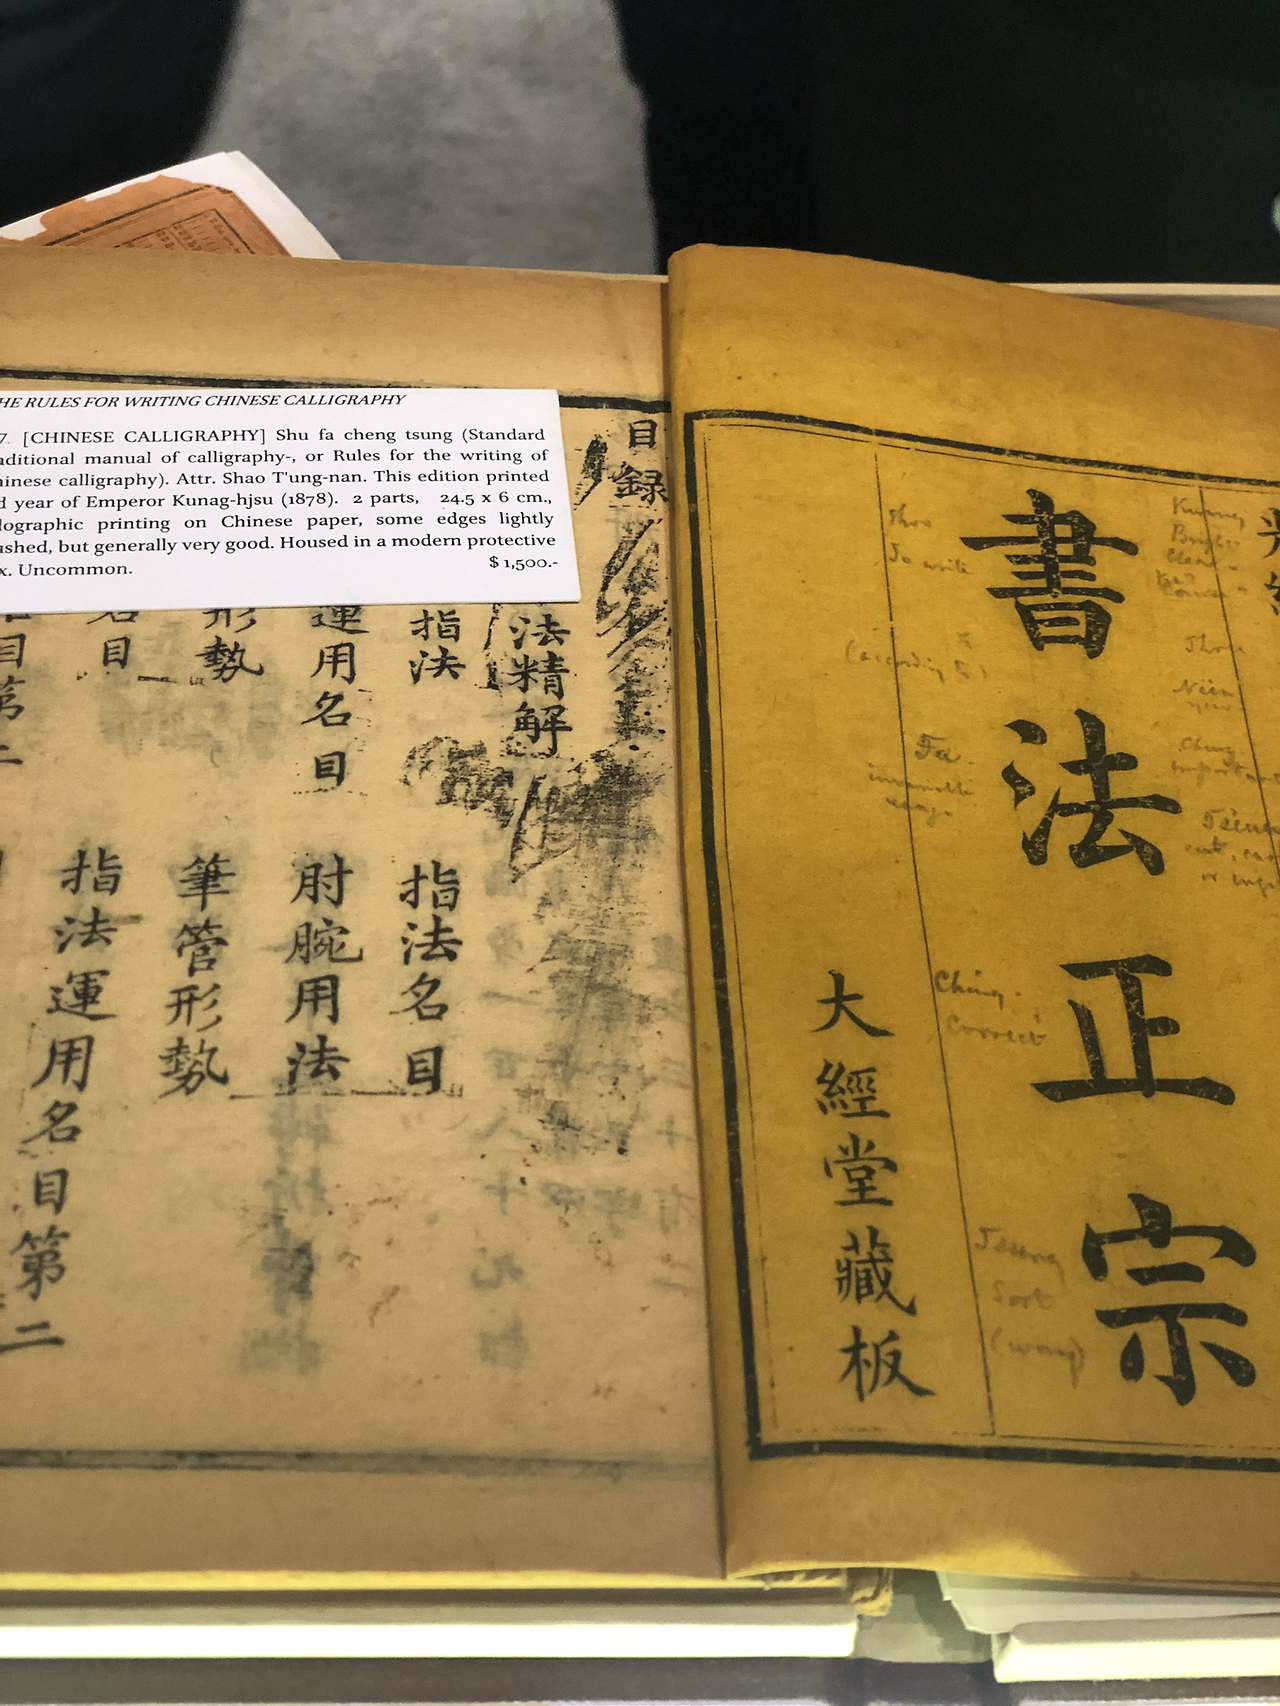 HE RULES FOR WRITING CHINESE CALLIGRAPHY
7. [CHINESE CALLIGRAPHY] Shu fa cheng tsung (Standard
aditional manual of calligraphy-, or Rules for the writing of
inese calligraphy). Attr. Shao T'ung-nan. This edition printed
d year of Emperor Kunag-hjsu (1878). 2 parts, 24.5 x 6 cm.,
lographic printing on Chinese paper, some edges lightly
ushed, but generally very good. Housed in a modern protective
x. Uncommon.
$ 1,500.-
書法正宗
大經堂藏板
To write
(according to)
Fa.
Ching.
Correct
Tsung
Sort
(way)
目錄
法精解
指法
指法名目
運用名目
肘腕用法
形勢
筆管形勢
名目
指法運用名目第二
目第二